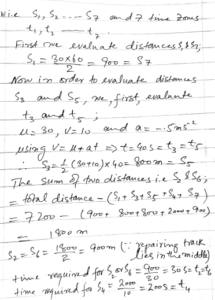 i.e S₁, S₂ --- S7 and 7 time zones
t₁, t₂ --- t₇.
First we evaluate distances S₁ & S₇
S₁ = 30×60/2 = 900 = S7
Now in order to evaluate distances
S3 and S5, we, first, evaluate
t3 and t5;
u = 30, V = 10 and a = -.5ms⁻²
using V = u+at ⇒ t = 40s = t3 = t5
∴ S3 = ½(30+10)×40 = 800m = S5
The sum of two distances i.e S2 & S6;
= total distance - (S₁+S3+S5+S4+S7)
= 7200 - (900+800+800+2000+900)
= 1800 m
S2 = S6 = 1800/2 = 900m (∵ repairing track
lies in the middle)
time required for S2 or S6 = 900/30 = 30s = t2 = t6
time required for S4 = 2000/10 = 200s = t4